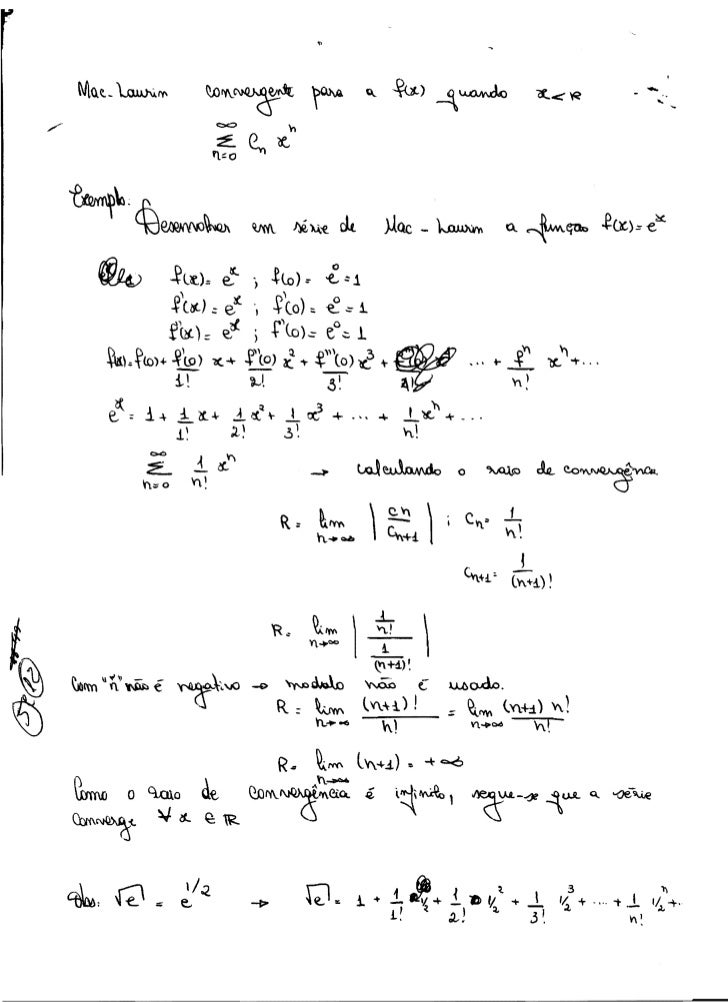 Mac-Laurin convergente para a f(x) quando x<R
∞ Σ n=0 Cn xⁿ
Exemplo:
Desenvolver em série de Mac-Laurin a função f(x)=eˣ
f(x)= eˣ ; f(0)= e⁰=1
f'(x)= eˣ ; f'(0)= e⁰=1
f''(x)= eˣ ; f''(0)= e⁰=1
f(x)=f(0)+ f'(0)/1! x + f''(0)/2! x² + f'''(0)/3! x³ + ... + fⁿ/n! xⁿ+...
eˣ = 1 + 1/1! x + 1/2! x² + 1/3! x³ + ... + 1/n! xⁿ + ...
∞ Σ n=0 1/n! xⁿ → calculando o raio de convergência
R = lim n→∞ | cn/Cn+1 | ; Cn= 1/n!
Cn+1= 1/(n+1)!
R= lim n→∞ | (1/n!)/(1/(n+1)!) |
Com "n" não é negativo → modulo não é usado.
R = lim n→∞ (n+1)!/n! = lim n→∞ (n+1) n!/n!
R= lim n→∞ (n+1) = +∞
Como o raio de convergência é infinito, segue-se que a série
converge ∀ x ∈ ℝ
Obs: √e = e^1/2 → √e = 1 + 1/1! 1/2 + 1/2! 1/2² + 1/3! 1/2³ + ... + 1/n! 1/2ⁿ+..